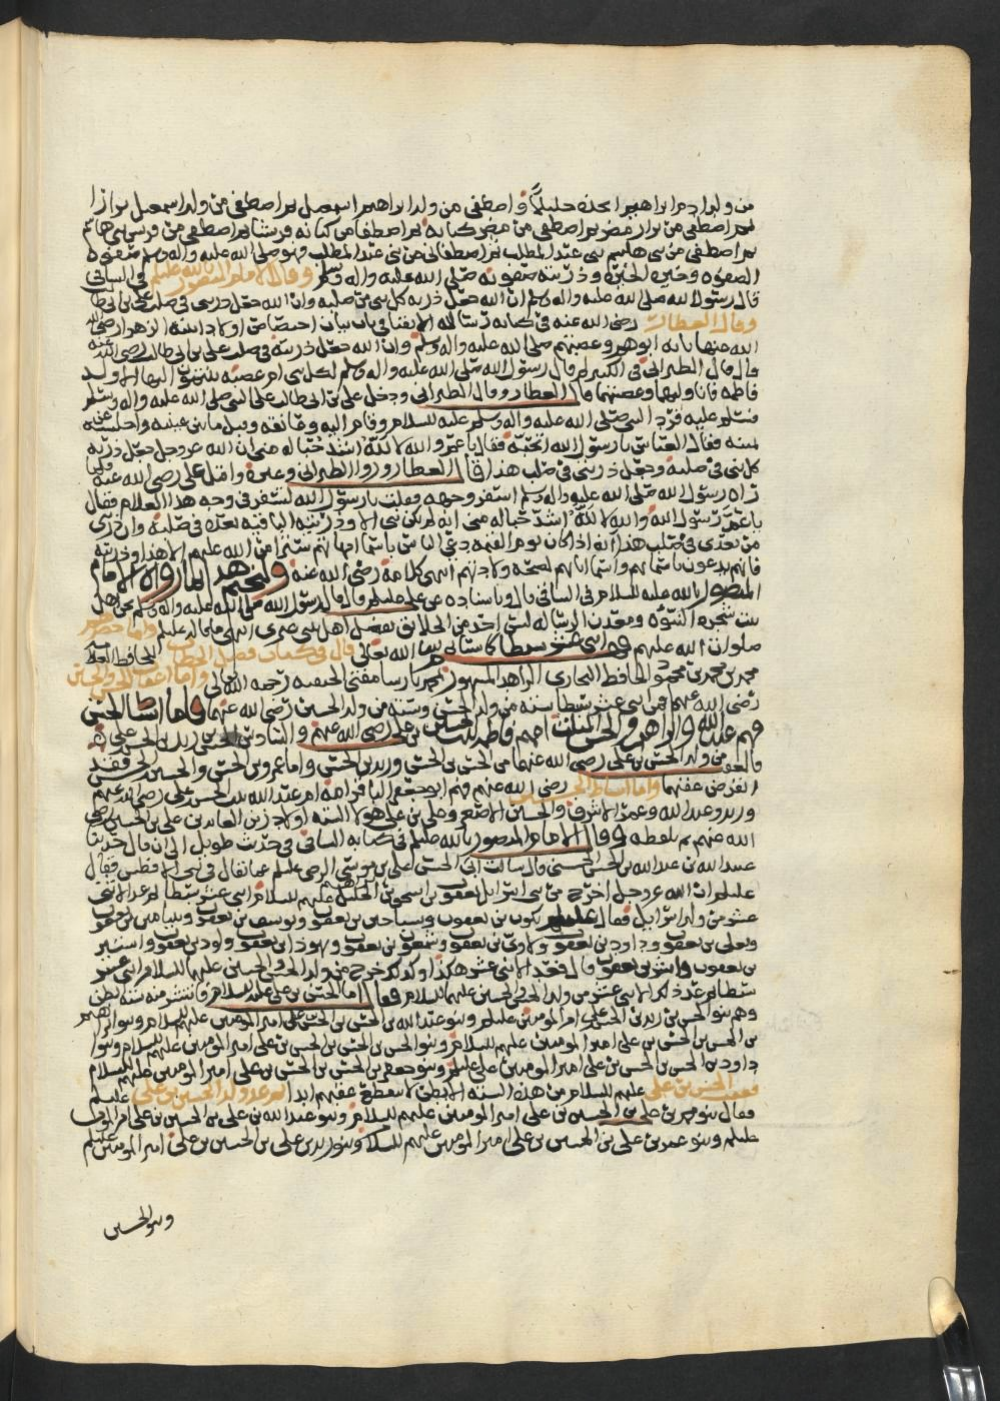 من ولد ادم ابراهيم اتخذه خليلاً واصطفى من ولد ابراهيم اسمعيل ثم اصطفى من ولد اسمعيل نزارا
ثم اصطفى من نزار مضر ثم اصطفى من مضر كنانة ثم اصطفى من كنانة قريشا ثم اصطفى من قريش بني هاشم
ثم اصطفى من بني هاشم بني عبد المطلب ثم اصطفاني من بني عبد المطلب فهو صلى الله عليه واله وسلم صفوة
الصفوة وخيرة الخيرة وذريته صفوته صلى الله عليه واله وسلم وقال الامام المنصور بالله عليلم في الشافي
قال رسول الله صلى الله عليه واله وسلم ان الله جعل ذرية كل نبي من صلبه وان الله جعل ذريتي في صلب علي بن ابي طالب
وقال العطار رضي الله عنه في كتابه في باب بيان اختصاص اولاد ابنته الزهرا رضي الله
عنها بانه ابوهم وعصبتهم صلى الله عليه واله وسلم وان الله جعل ذريته في صلب علي بن ابي طالب رضي الله عنه
قال قال الطبراني في الكبير قال رسول الله صلى الله عليه واله وسلم لكل بني ام عصبة ينتمون اليها الا ولد
فاطمة فانا وليها وعصبتهما قال العطار وقال الطبراني ودخل علي بن ابي طالب على النبي صلى الله عليه واله وسلم
فسلم عليه فرد النبي صلى الله عليه واله وسلم عليه السلام وقام اليه وعانقه وقبل ما بين عينيه واجلسه عن
يمينه فقال العباس يا رسول الله اتحبه فقال يا عم والله لله اشد حبا له مني ان الله عز وجل جعل ذرية
كل نبي في صلبه وجعل ذريتي في صلب هذا قال العطار وروا الطبراني وغيره واقبل علي رضي الله عنه
راه رسول الله صلى الله عليه واله وسلم اسفر وجهه وقلت يا رسول الله لتسفر في وجه هذا الغلام فقال
يا عم رسول الله والله لله اشد حبا له مني انه لم يكن نبي الا وذريته الباقية بعده في صلبه وان ذريتي
من بعدي في صلب هذا انه اذا كان يوم القيمة دعي الناس باسما امهاتهم سترا من الله عليهم الا هذا وذريته
فانهم يدعون باسمائهم واسما ابائهم لصحة ولادتهم انتهى كلامه رضي الله عنه قال الامام
المنصور بالله عليه السلام في الشافي قال وباسناده عن علي عليلم قال قال رسول الله صلى الله عليه واله وسلم نحن اهل
بيت شجرة النبوة ومعدن الرسالة ليس احد من الخلايق يفضل اهل بيتي غيري
صلوات الله عليهم اثنى عشر سبطا الله تعالى قال في كتاب فصل الخطاب الحافظ
محمد بن محمد بن محمود الحافظي البخاري الزاهد المشهور بخواجه بارسا مفتي الحنفية رحمه الله تعالى واما اعقاب الحسن والحسين
رضي الله عنهما فمن اثنى عشر سبطا ستة من ولد الحسن وستة من ولد الحسين رضي الله عنهما واما اسباط الحسن
فهم عبد الله وابراهيم والحسن امهم فاطمة بنت الحسين بن علي رضي الله عنهم
من ولد الحسن بن علي رضي الله عنهما من الحسن بن الحسن وزيد بن الحسن واما عمرو بن الحسن والحسين بن الحسن فقد
انقرض عقبهما واما اسباط الحسين رضي الله عنهم فهم ابو جعفر الباقر امه ام عبد الله بنت الحسن بن علي رضي الله عنهم
وزيد وعبد الله وعمر الاشرف والحسين الاصغر وعلي بن علي هولا الستة اولاد زين العابدين علي بن الحسين رضي
الله عنهم تم بلفظه وقال الامام المنصور بالله عليلم في كتابه الشافي في حديث طويل الى ان قال حدثنا
عبد الله بن عبد الله بن الحسن الحسني قال سالت ابا الحسن علي بن موسى الرضى عليلم عما يقال في بني الافطس فقال
عليلم ان الله عز وجل اخرج من بني اسرائيل يعقوب بن اسحق بن ابراهيم الخليل عليهم السلام اثنى عشر سبطا ثم عد الاثنى
عشر من ولد اسرائيل فقال عليلم يكون بن يعقوب ويساخر بن يعقوب ويوسف بن يعقوب وبنيامين بن يعقوب
ونفتلى بن يعقوب وداود بن يعقوب ولاوي بن يعقوب وشمعون بن يعقوب ويهوذا بن يعقوب
بن يعقوب قال فعد الاثنى عشر هكذا وكذلك خرج من ولد الحسن والحسين عليهما السلام اثنى عشر
سبطا ثم عد ذكر الاثنى عشر من ولد الحسن والحسين عليهما السلام فقال اما الحسن بن علي عليه السلام فانتشر منه ستة ابطن
وهم بنو الحسن بن زيد بن الحسن بن علي امير المومنين عليلم وبنو عبد الله بن الحسن بن الحسن بن علي امير المومنين عليهم السلام وبنو ابراهيم
بن الحسن بن الحسن بن علي امير المومنين عليهم السلام وبنو الحسن بن الحسن بن الحسن بن علي امير المومنين عليهم السلام وبنو
داود بن الحسن بن الحسن بن علي امير المومنين علي عليلم وبنو جعفر بن الحسن بن الحسن بن علي امير المومنين عليهم السلام
فعقب الحسن بن علي عليهم السلام من هذه الستة الابطن لا ينقطع عقبهم ابدا ثم عد ولد الحسين بن علي عليلم
فقال بنو محمد بن علي بن الحسين بن علي امير المومنين عليهم السلام وبنو عبد الله بن علي بن الحسين بن علي امير المومنين
عليلم وبنو عمر بن علي بن الحسين بن علي امير المومنين عليهم السلام وبنو زيد بن علي بن الحسين بن علي امير المومنين عليلم
وبنو الحسين